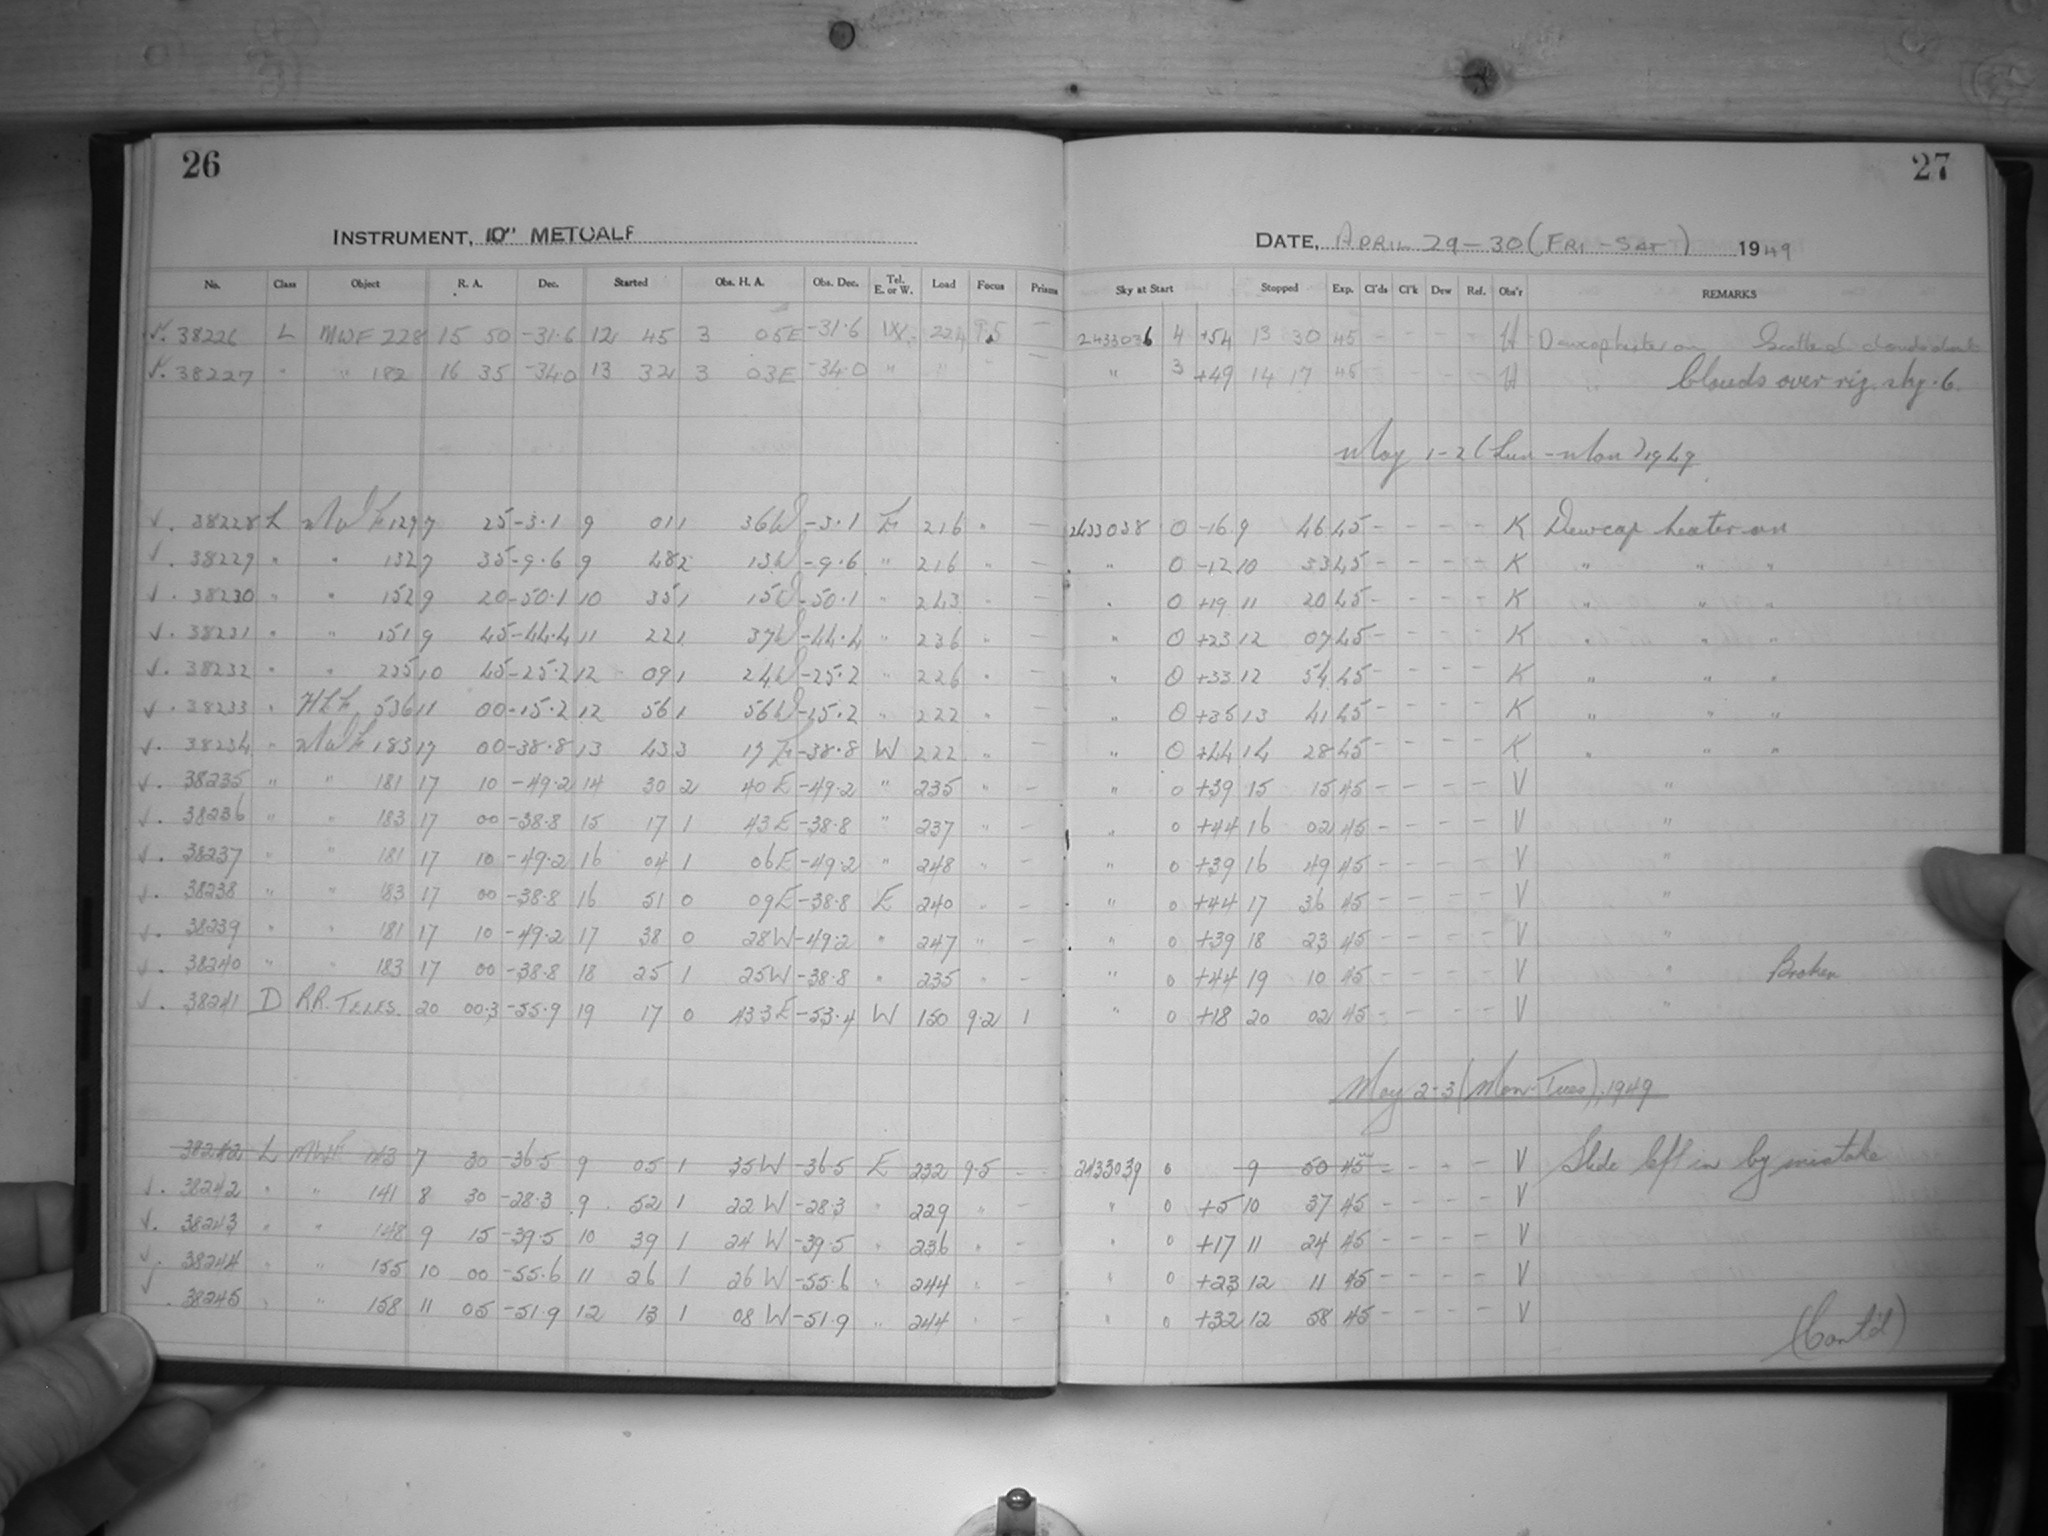 26
27
INSTRUMENT, 10" METCALF
DATE, APRIL 29-30 (FRI-SAT) 1949
No. Class Object R. A. Dec. Started Obs. H. A. Obs. Dec. Tel. E. or W. Load Focus Prisms Sky at Start Stopped Exp. Cl'ds Cl'k Dew Ref. Obs'r REMARKS
√. 38226 L MWF 228 15 50 -31.6 12 45 3 05E -31.6 W. 224 9.5 — 2433036 4 +54 13 30 45 - - - - H Dewcap heater on Scattered clouds
√. 38227 " " 182 16 35 -34.0 13 32 3 03E -34.0 " " " 3 +49 14 17 45 H " Clouds over rig. sky. 6.
May 1-2 (Sun-Mon) 1949
√. 38228 L MWF 129 7 25 -3.1 9 01 1 36W -3.1 E 216 " — 2433038 0 -16 9 46 45 - - - - K Dewcap heater on
√. 38229 " " 132 7 35 -9.6 9 48 2 13W -9.6 " 216 " — " 0 -12 10 33 45 - - - - K " " "
√. 38230 " " 152 9 20 -50.1 10 35 1 15W -50.1 " 243 " — " 0 +19 11 20 45 - - - - K " " "
√. 38231 " " 151 9 45 -44.4 11 22 1 37W -44.4 " 236 " — " 0 +23 12 07 45 - - - - K " " "
√. 38232 " " 235 10 45 -25.2 12 09 1 24W -25.2 " 226 " — " 0 +33 12 54 45 - - - - K " " "
√. 38233 " HLF. 536 11 00 -15.2 12 56 1 56W -15.2 " 222 " — " 0 +35 13 41 45 - - - - K " " "
√. 38234 " MWF 183 17 00 -38.8 13 43 3 17E -38.8 W 222 " — " 0 +44 14 28 45 - - - - K " " "
√. 38235 " " 181 17 10 -49.2 14 30 2 40E -49.2 " 235 " — " 0 +39 15 15 45 - - - - V "
√. 38236 " " 183 17 00 -38.8 15 17 1 43E -38.8 " 237 " — " 0 +44 16 02 45 - - - - V "
√. 38237 " " 181 17 10 -49.2 16 04 1 06E -49.2 " 248 " — " 0 +39 16 49 45 - - - - V "
√. 38238 " " 183 17 00 -38.8 16 51 0 09E -38.8 E 240 " — " 0 +44 17 36 45 - - - - V "
√. 38239 " " 181 17 10 -49.2 17 38 0 28W -49.2 " 247 " — " 0 +39 18 23 45 - - - - V "
√. 38240 " " 183 17 00 -38.8 18 25 1 25W -38.8 " 235 " — " 0 +44 19 10 45 - - - - V " Broken
√. 38241 D RR. TELES. 20 00.3 -55.9 19 17 0 43.3E -53.4 W 150 9.2 1 " 0 +18 20 02 45 - - - - V "
May 2-3 (Mon-Tues), 1949
38242 L MWF 143 7 30 -36.5 9 05 1 35W -36.5 E 232 9.5 — 2433039 0 9 50 45 - - - - V Slide left in by mistake
√. 38242 " " 141 8 30 -28.3 9 52 1 22W -28.3 " 229 " — " 0 +5 10 37 45 - - - - V
√. 38243 " " 148 9 15 -39.5 10 39 1 24W -39.5 " 236 " — " 0 +17 11 24 45 - - - - V
√. 38244 " " 155 10 00 -55.6 11 26 1 26W -55.6 " 244 " — " 0 +23 12 11 45 - - - - V
√. 38245 " " 158 11 05 -51.9 12 13 1 08W -51.9 " 244 " — " 0 +32 12 58 45 - - - - V
(Cont'd)